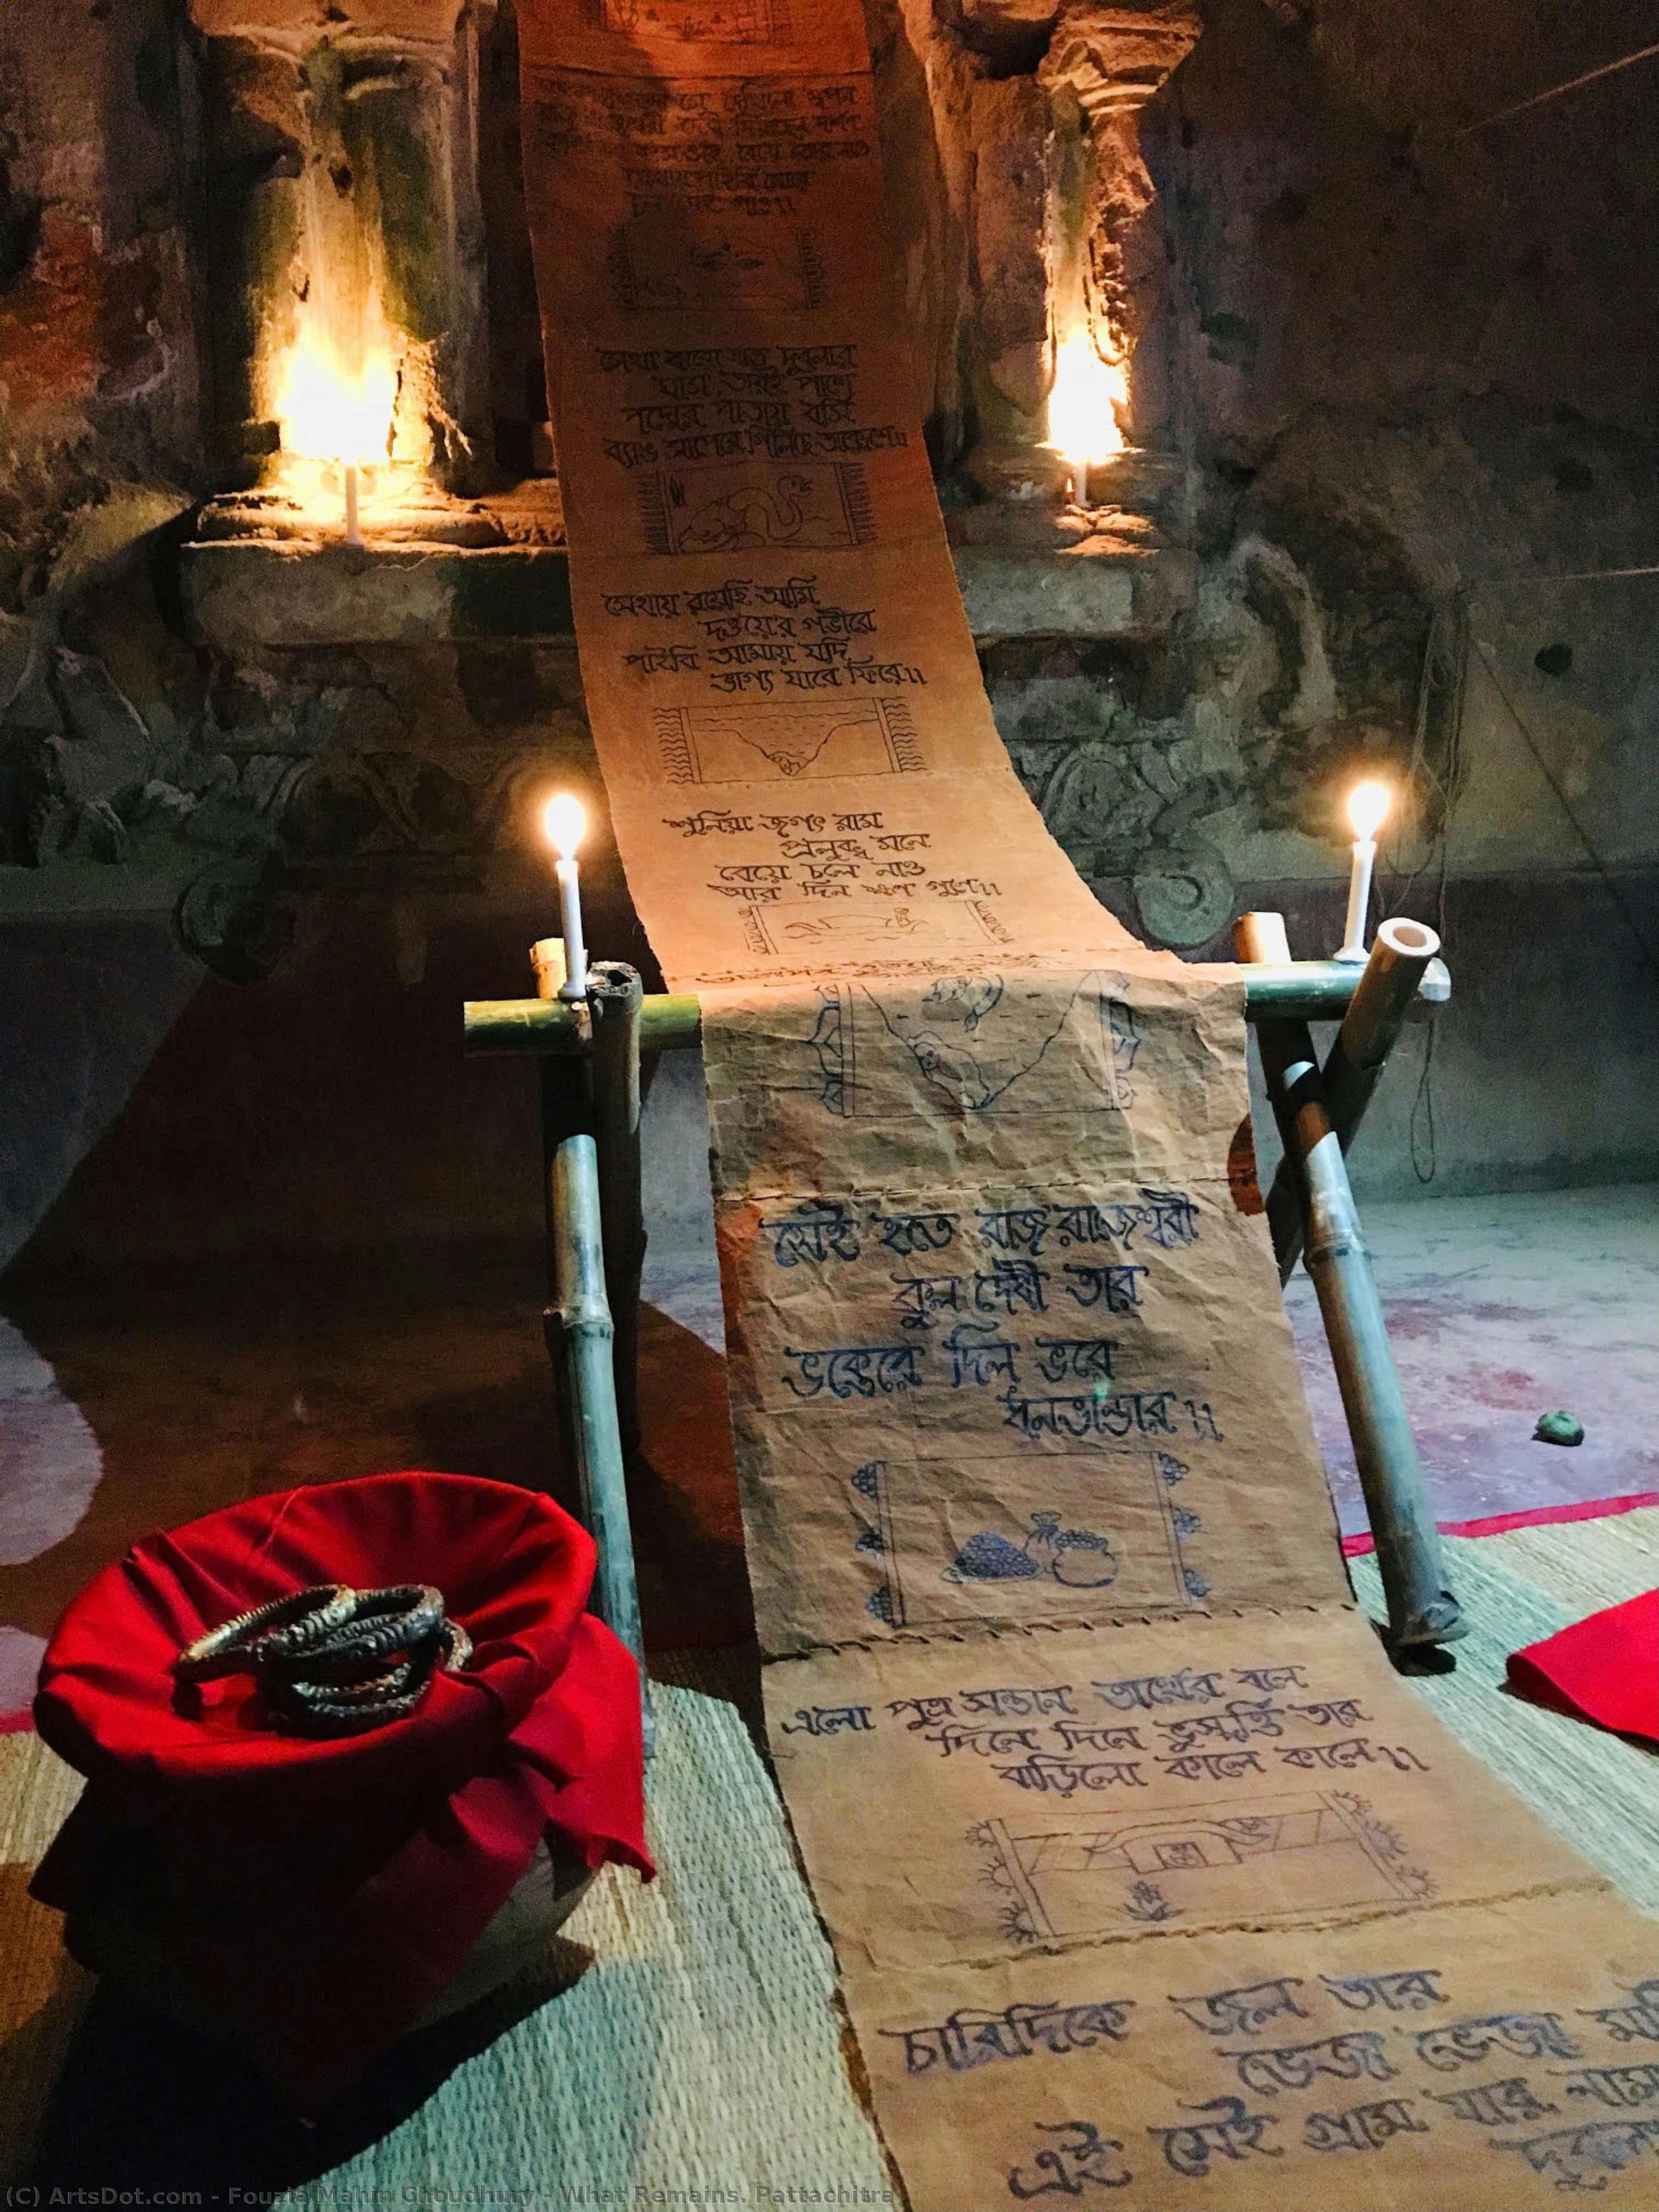 দেখিলা স্বপন
সেথা
দুবলার
ঘাস তারই পাশে
পদ্মের পাতায় বসি
ব্যাঙ সাপেরে গিলিছে অক্লেশে।।
সেথায় রয়েছি আমি
দওয়ের গভীরে
পাইবি আমায় যদি
ভাগ্য যাবে ফিরে।।
শুনিয়া জগৎ রাম
প্রলুব্ধ মনে
বেয়ে চলে নাও
আর দিন ক্ষণ গুণে।।
সেই হতে রাজ রাজেশ্বরী
কুল দেবী তার
ভক্তেরে দিল ভরে
ধনভান্ডার।।
এলো পুত্র সন্তান অর্থের বলে
দিনে দিনে ভুসম্পত্তি তার
বাড়িলো কালে কালে।।
চারিদিকে জল তার
ভেজা ভেজা
এই সেই গ্রাম যার নাম
(C) ArtsDot.com - Fouzia Mahin Choudhury - What Remains. Pattachitra